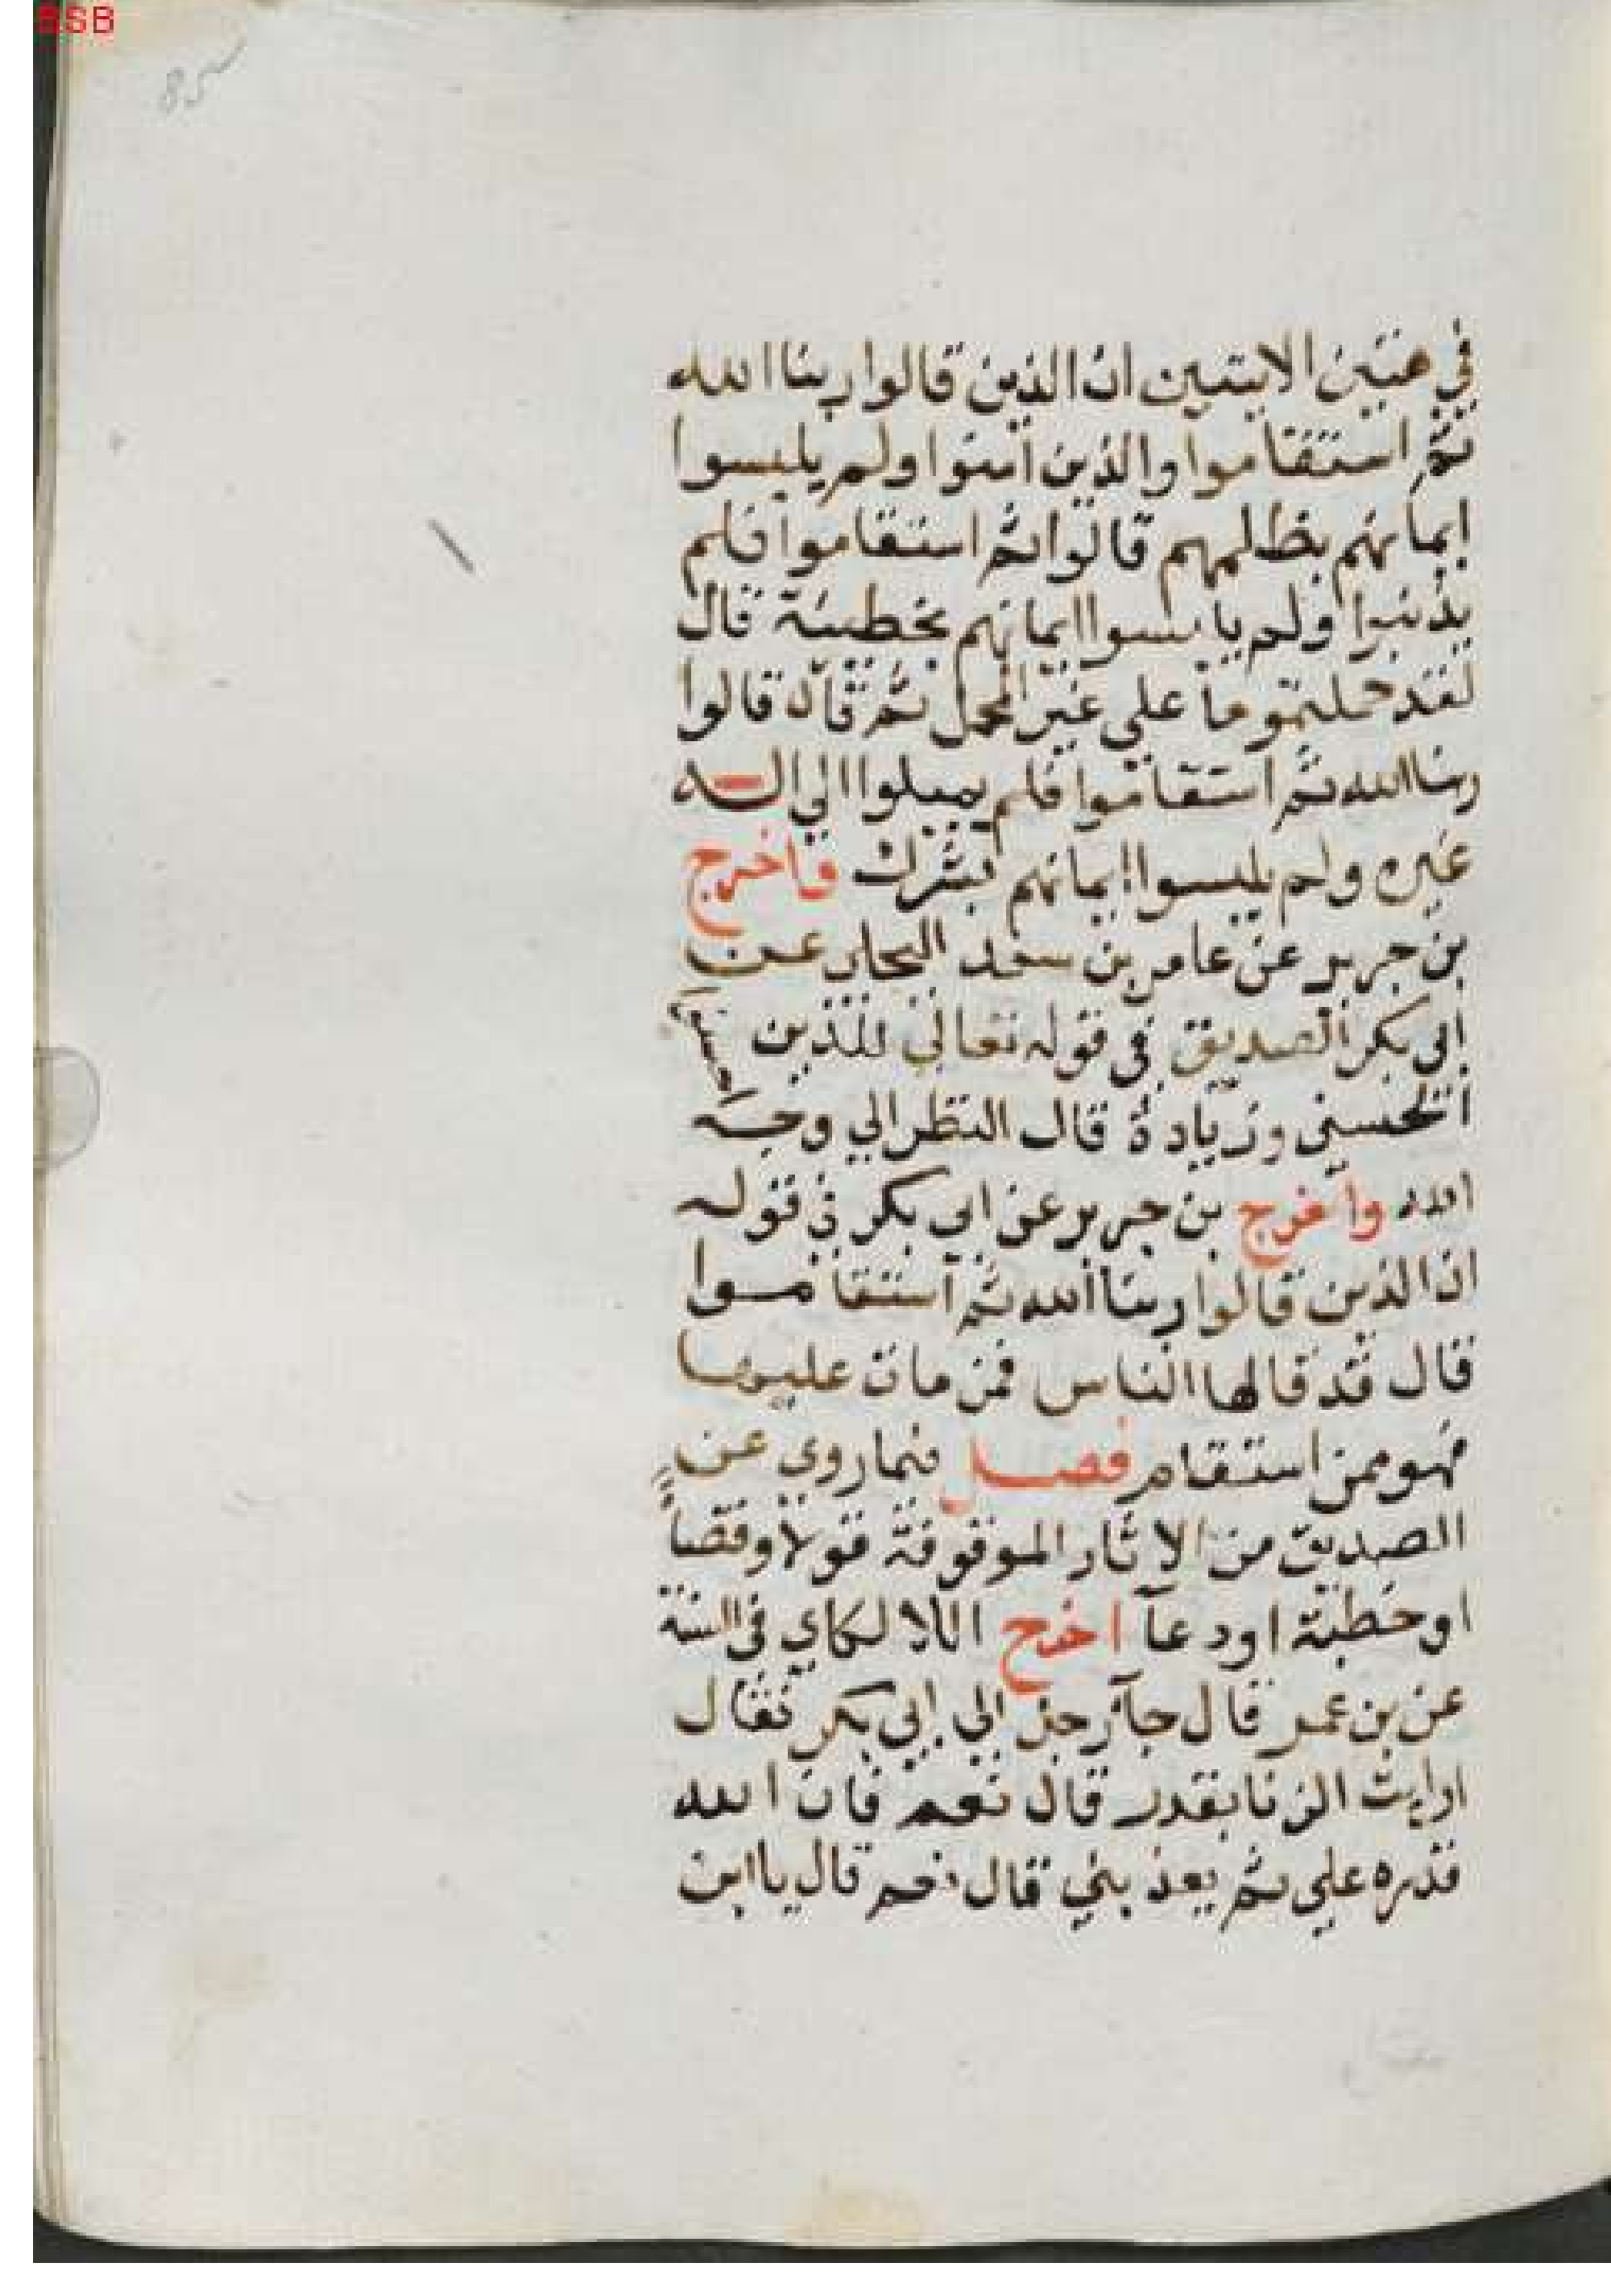 BSB
85
في هتين الايتين ان الذين قالوا ربنا الله
ثم استقاموا والذين آمنوا ولم يلبسوا
إيمانهم بظلمهم قالوا ثم استقاموا فلم
يذنبوا ولم يلبسوا ايمانهم بخطيئة قال
لقد حملتموها على غير المحمل ثم قال قالوا
ربنا الله ثم استقاموا فلم يميلوا الي اله
غيره ولم يلبسوا ايمانهم بشرك فاخرج
بن جرير عن عامر بن سعد البجلي عن
أبي بكر الصديق في قوله تعالي للذين احسنوا
الحسني وزيادة قال النظر الي وجه
الله واخرج بن جرير عن ابي بكر في قوله
ان الذين قالوا ربنا الله ثم استقاموا
قال قد قالها الناس فمن مات عليها
فهو ممن استقام فصل فيما روي عن
الصديق من الاثار الموقوفة قولا وقضاً
او خطبة او دعآ اخرج اللالكاي في السنة
عن بن عمر قال جآ رجل الي ابي بكر فقال
ارايت الزنا بقدر قال نعم قال فان الله
قدره علي ثم يعذبني قال نعم قال يا ابن